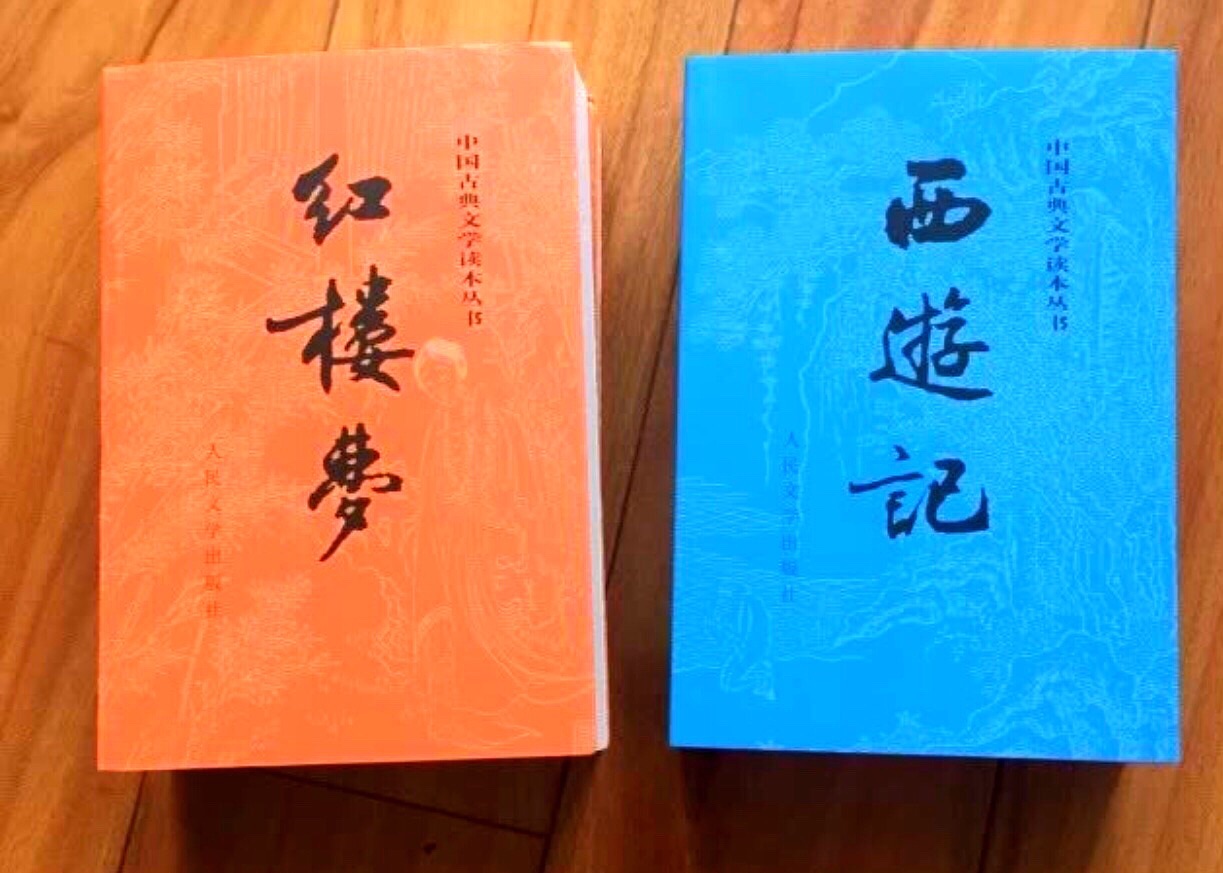 中国古典文学读本丛书
红楼夢
人民文学出版社
中国古典文学读本丛书
西遊記
人民文学出版社